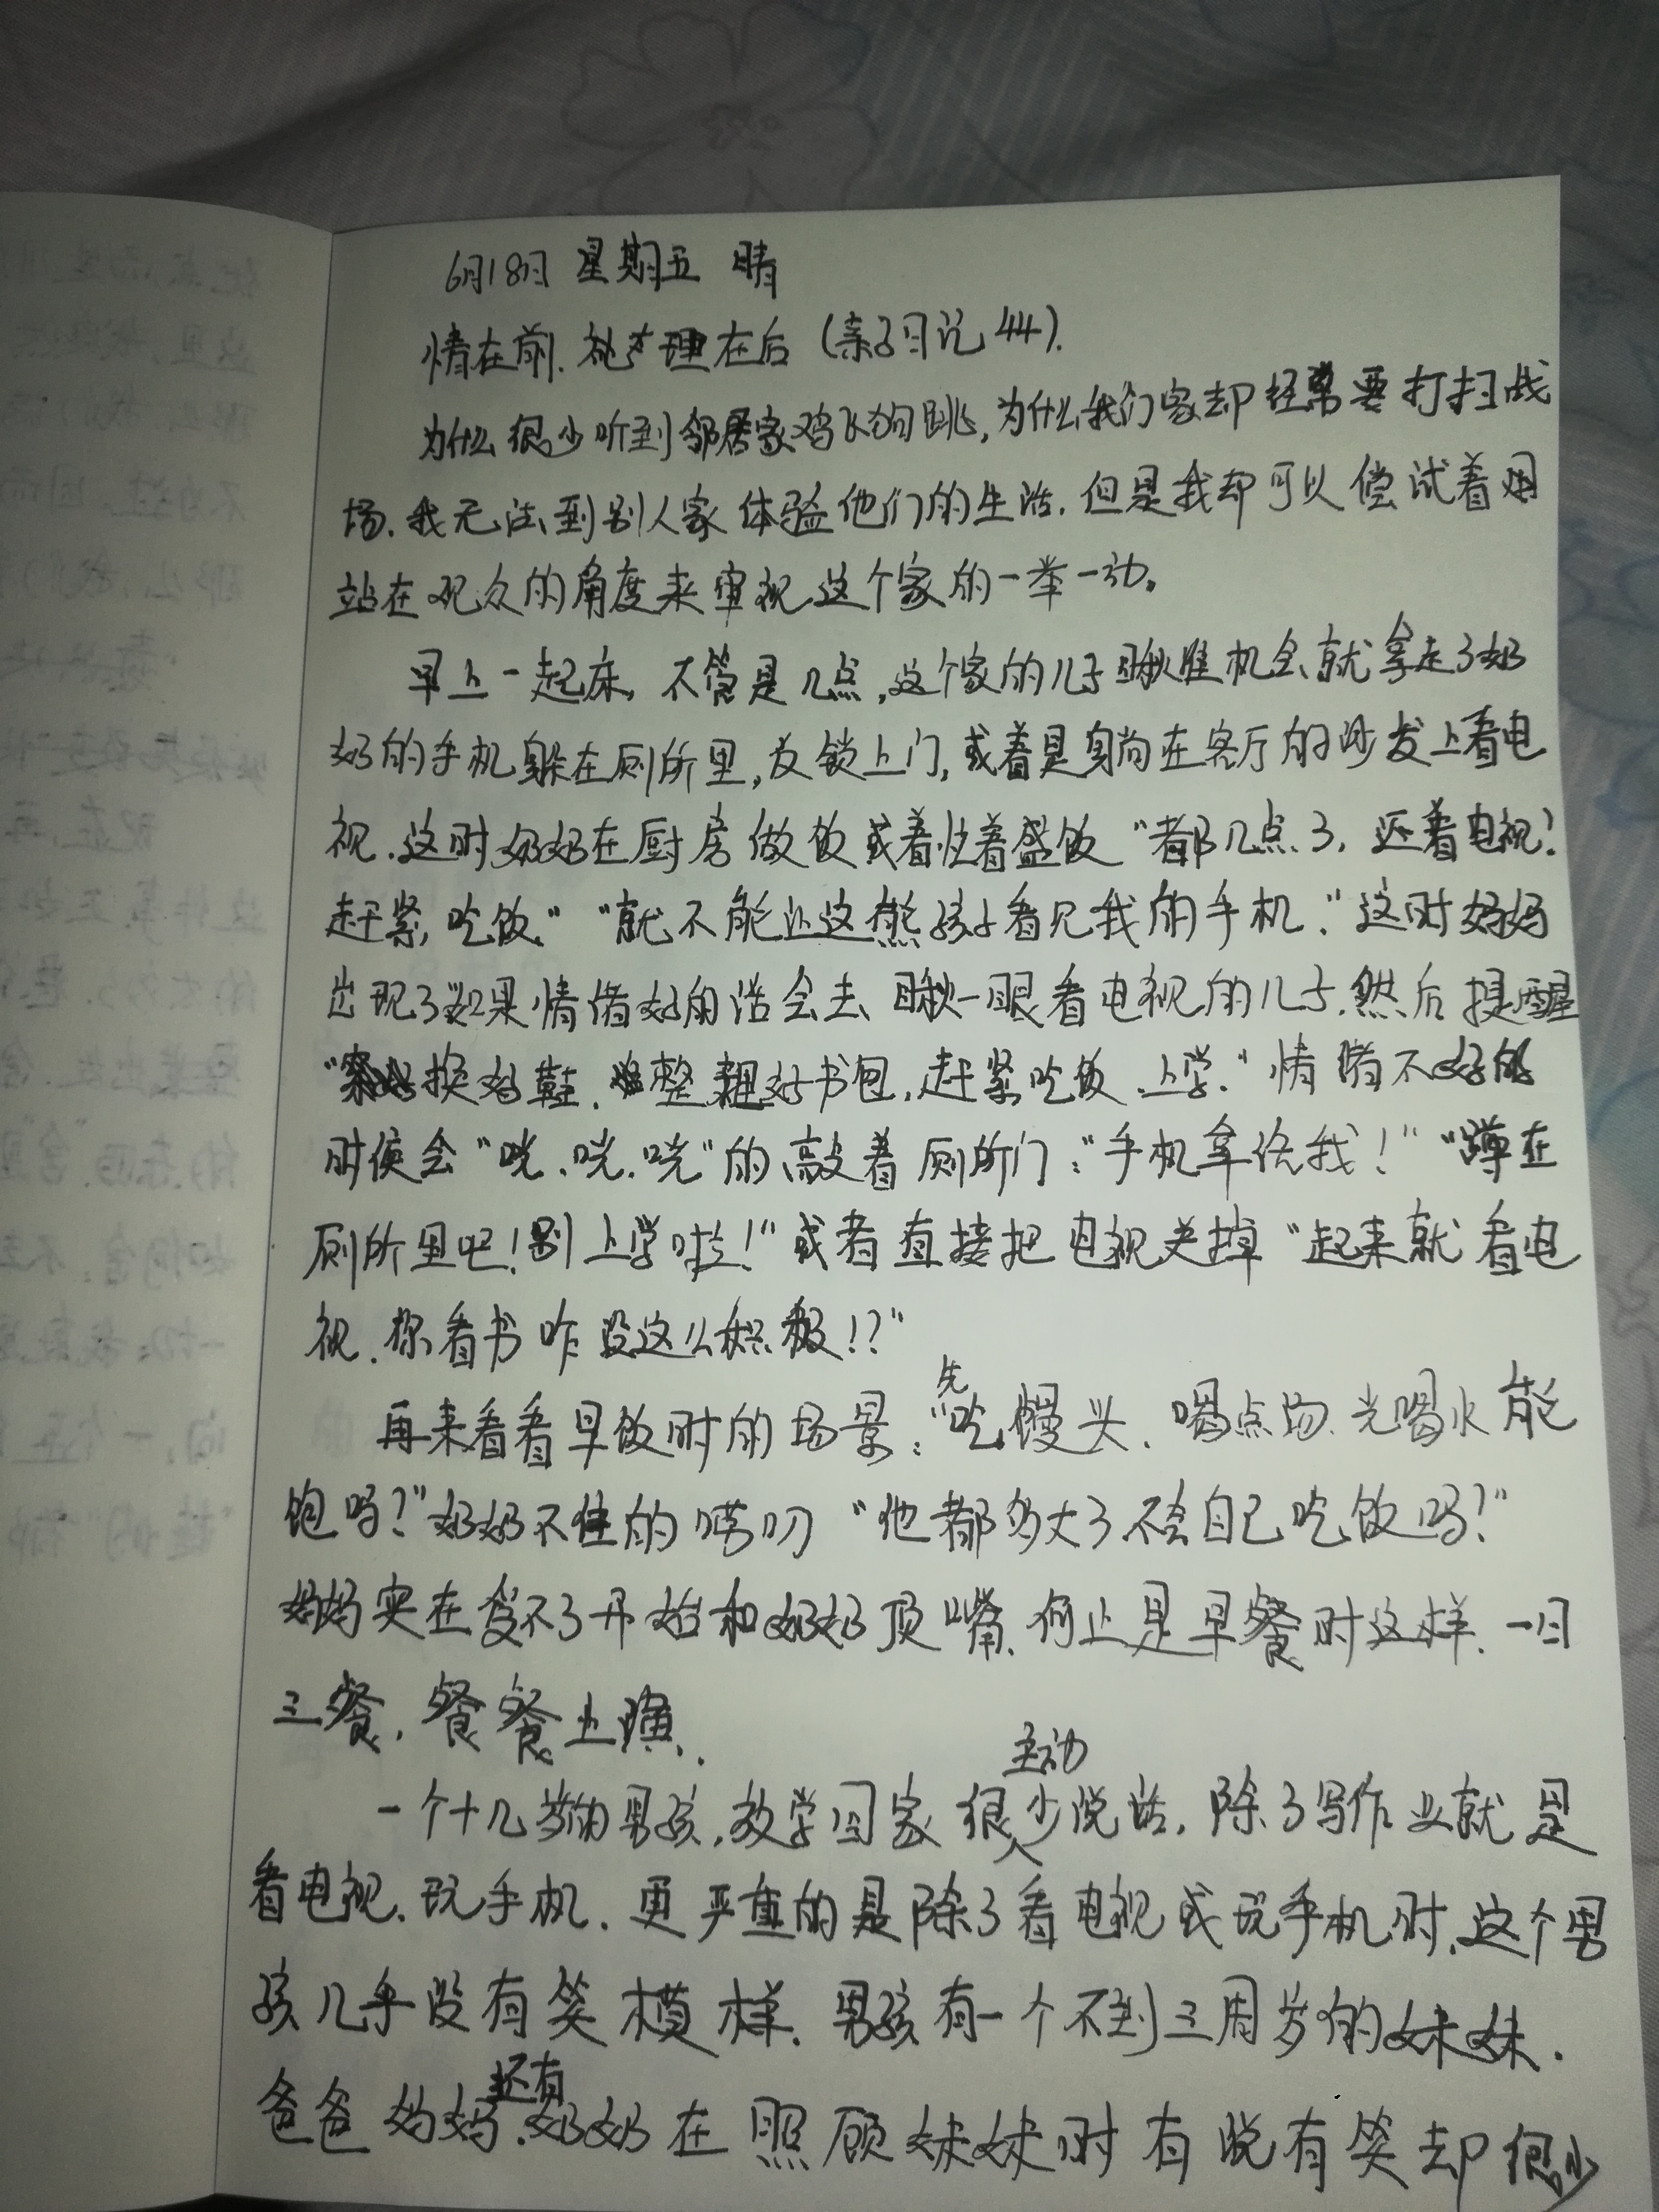 6月18日 星期五 晴
情在前.处理在后（亲子日记44）.
为什么很少听到邻居家鸡飞狗跳,为什么我们家却经常要打扫战
场.我无法到别人家体验他们的生活.但是我却可以偿试着用
站在观众的角度来审视这个家的一举一动。
早上一起床,不管是几点,这个家的儿子瞅准机会就拿走了奶
奶的手机躲在厕所里,反锁上门,或着是躺在客厅的沙发上看电
视.这时奶奶在厨房做饭或着忙着盛饭"都几点了,还看电视!
赶紧吃饭""就不能让这熊孩子看见我的手机."这时妈妈
出现了如果情绪好的话会去瞅一眼看电视的儿子.然后提醒
"换好鞋.整理好书包,赶紧吃饭.上学."情绪不好的
时候会"咣.咣.咣"的敲着厕所门:"手机拿给我!""蹲在
厕所里吧!别上学啦!"或者直接把电视关掉"起来就看电
视.你看书咋没这么积极!?"
再来看看早饭时的场景:"先吃馒头.喝点汤.光喝水能
饱吗?"奶奶不住的唠叨"他都多大了不会自己吃饭吗?"
妈妈实在受不了开始和奶奶顶嘴.何止是早餐时这样.一日
三餐.餐餐上演.
一个十几岁的男孩,放学回家很少主动说话.除了写作业就是
看电视.玩手机.更严重的是除了看电视或玩手机时.这个男
孩几乎没有笑模样.男孩有一个不到三周岁的妹妹.
爸爸妈妈.还有奶奶在照顾妹妹时有说有笑却很少